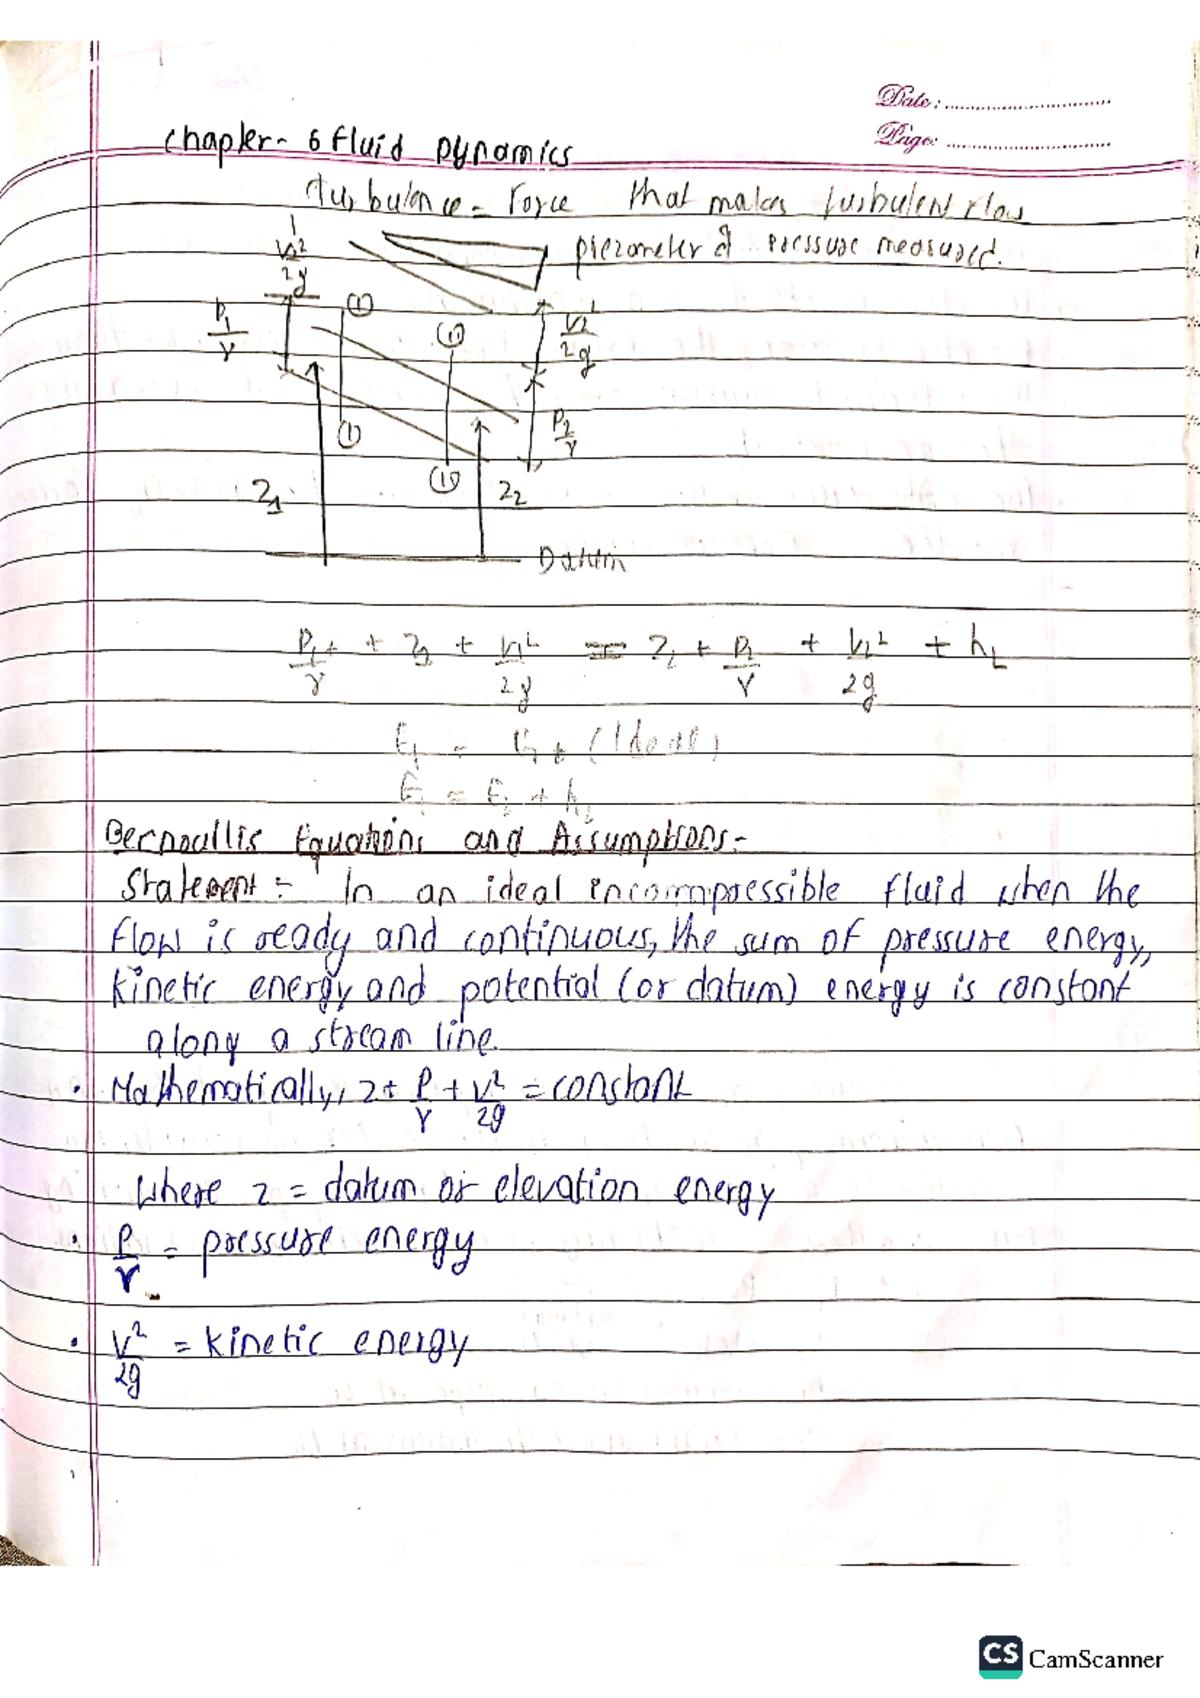 Date:
Page:
Chapter- 6 Fluid Dynamics
turbulence = Force that makes turbulent flow
piezometer pressure measured.
V₁²
2g
P₁
γ
①
(ii)
V₂²
2g
P₂
γ
①
(ii)
Z₁
Z₂
Datum
P₁/γ + Z₁ + V₁²/2g = Z₂ + P₂/γ + V₂²/2g + hL
(Ideal)
E₁ = E₂ + hL
Bernoullis Equations and Assumptions:-
Statement:- In an ideal incompressible fluid when the
flow is ready and continuous, the sum of pressure energy,
kinetic energy and potential (or datum) energy is constant
along a stream line.
• Mathematically, z + P/γ + V²/2g = constant
where z = datum or elevation energy
• P/γ = pressure energy
• V²/2g = kinetic energy
CS CamScanner